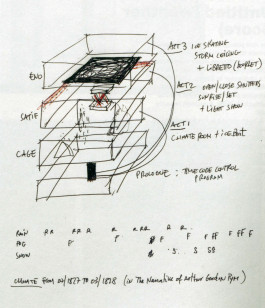 ACT 3 ICE SKATING
STORM CEILING
+ LIBRETTO (BOOKLET)
ENO
ACT 2 OPEN/CLOSE SHUTTERS
SUNRISE/SET
+ LIGHT SHOW
SATIE
ACT 1
CLIMATE ROOM + ICE BOAT
CAGE
PROLOGUE : TIMECODE CONTROL
PROGRAM
RAIN RR RR R R RRR R R
FOG F F F F F FF F FF F
SNOW S S SS
CLIMATE FROM 04/1827 TO 03/1828 (IN The Narrative of Arthur Gordon Pym)